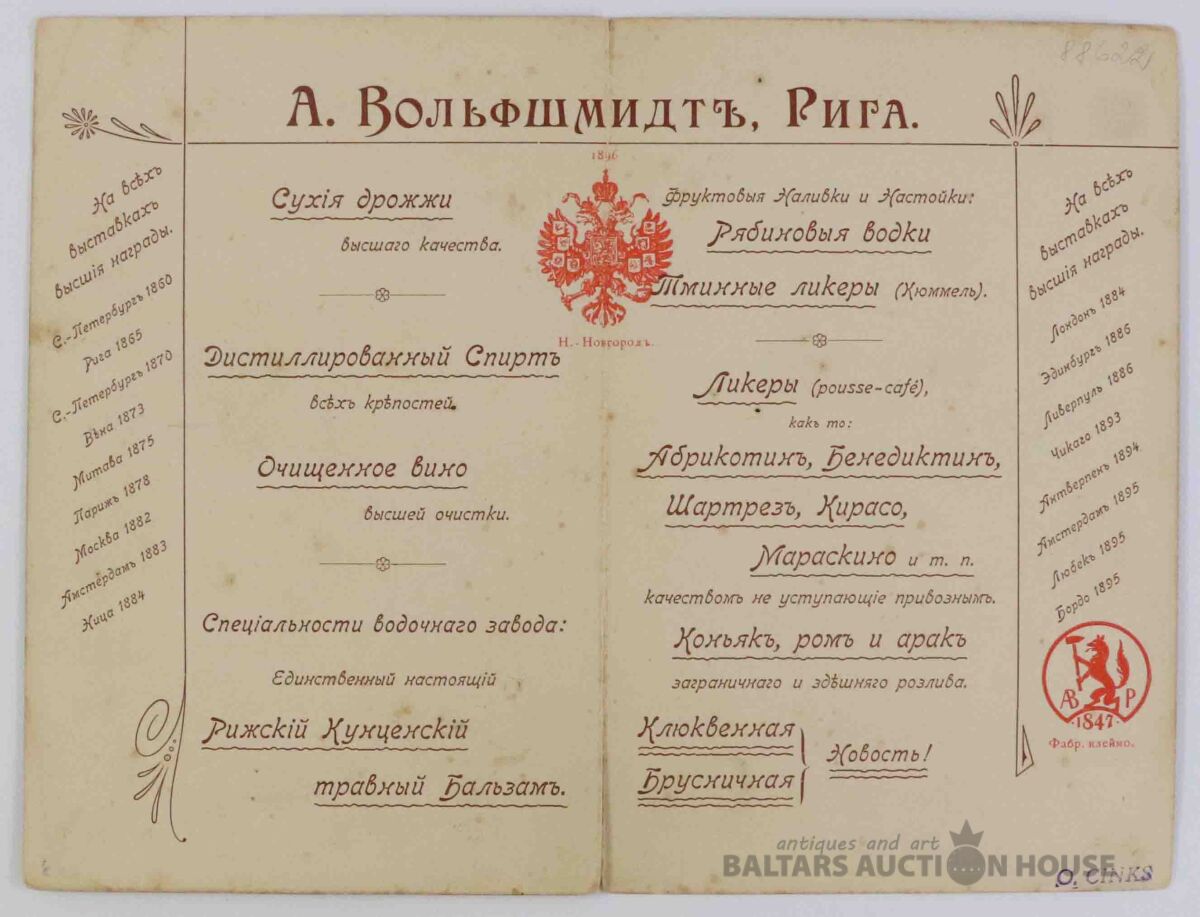 88622
А. Вольфшмидтъ, Рига.
На всѣхъ
выставкахъ
высшія награды.
С.-Петербургъ 1860
Рига 1865
С.-Петербургъ 1870
Вѣна 1873
Митава 1875
Парижъ 1878
Москва 1882
Амстердамъ 1883
Ница 1884
Сухія дрожжи
высшаго качества.
Дистиллированный Спиртъ
всѣхъ крѣпостей.
Очищенное вино
высшей очистки.
Спеціальности водочнаго завода:
Единственный настоящій
Рижскій Кунценскій
травный Бальзамъ.
1896
Н.-Новгородъ.
Фруктовыя Наливки и Настойки:
Рябиновыя водки
Тминные ликеры (Кюммель).
Ликеры (pousse-café),
какъ то:
Абрикотинъ, Бенедиктинъ,
Шартрезъ, Кирасо,
Мараскино и т. п.
качествомъ не уступающіе привознымъ.
Коньякъ, ромъ и аракъ
заграничнаго и здѣшняго розлива.
Клюквенная
Брусничная
Новость!
На всѣхъ
выставкахъ
высшія награды.
Лондонъ 1884
Эдинбургъ 1886
Ливерпуль 1886
Чикаго 1893
Антверпенъ 1894
Амстердамъ 1895
Любекъ 1895
Бордо 1895
АВ Р
·1847·
Фабр. клеймо.
antiques and art
BALTARS AUCTION HOUSE
O. CINKS